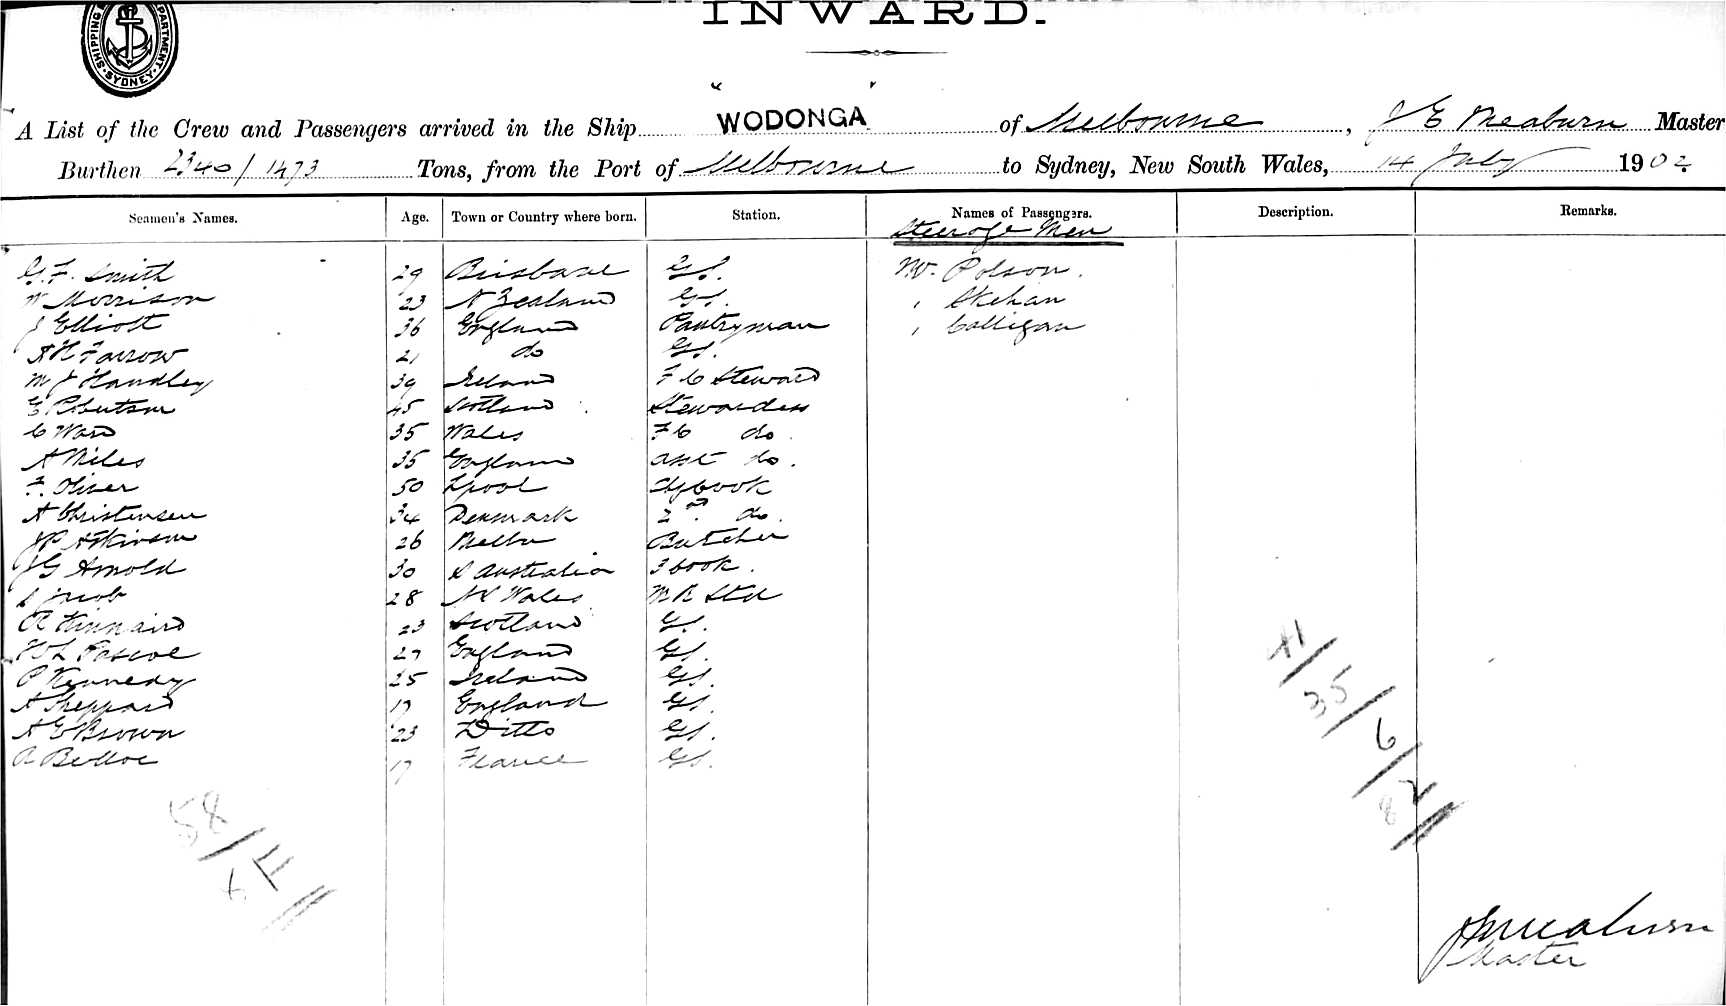 SHIPPING DEPARTMENT SYDNEY
INWARD.
A List of the Crew and Passengers arrived in the Ship "WODONGA" of Melbourne, J E Meaburn Master
Burthen 2340/1473 Tons, from the Port of Melbourne to Sydney, New South Wales, 14 July 1902
Seamen's Names. Age. Town or Country where born. Station. Names of Passengers. Description. Remarks.
Steerage Men
G. F. Smith 29 Brisbane GS. Mr. Polson.
W Morrison 23 N Zealand GS. " Skehan
J Elliott 36 England Pantryman " Calligan
A H Farrow 21 do GS.
M J Handley 39 Ireland F C Steward
E Robertson 45 Scotland Stewardess
C Ward 35 Wales F C do.
A Niles 35 England asst do.
F. Oliver 50 Lpool Cook
A Christensen 34 Denmark 2nd. do.
J P Atkinson 26 Melbn Butcher
J G Arnold 30 S Australia 3 Cook.
S Jacob 28 N S Wales M R Std
R Kinnaird 23 Scotland GS.
W L Pascoe 27 England GS.
P Kennedy 25 Ireland GS.
A Sheppard 17 England GS.
A E Brown 23 Ditto GS.
R Belloe 17 France GS.
41/35/6/82//
58/
J E Meaburn
Master